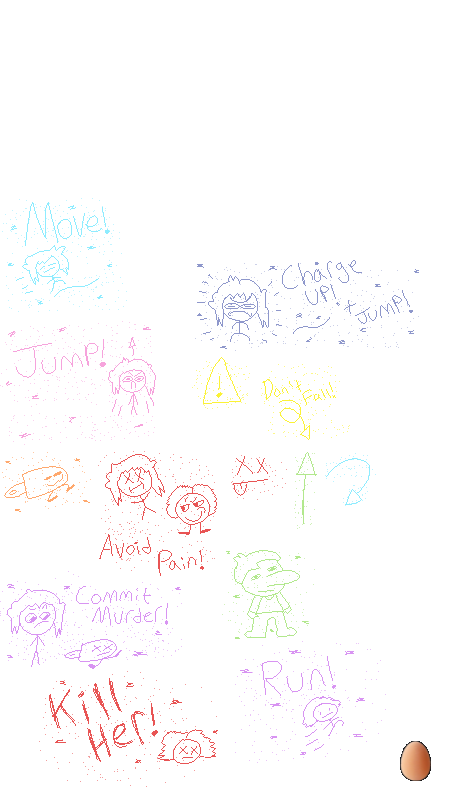 Move!
Charge
UP!
+ JUMP!
Jump!
Don't
Fall!
XX
Avoid
Pain!
Commit
Murder!
Run!
Kill
Her!